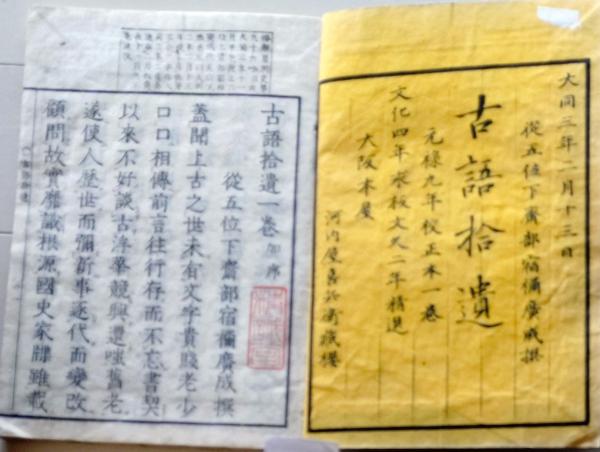 大同三年二月十三日
從五位下齋部宿禰廣成撰
古語拾遺
元禄九年校正本一巻
文化四年求板文久二年精選
大阪本屋
河内屋喜兵衛蔵
古語拾遺一巻加序
從五位下齋部宿禰廣成撰
蓋聞上古之世未有文字貴賤老少
口口相傳前言往行存而不忘書契
以來不好談古浮華競興還嗤舊老
遂使人歴世而彌新事逐代而變改
顧問故實靡識根源國史家牒雖載